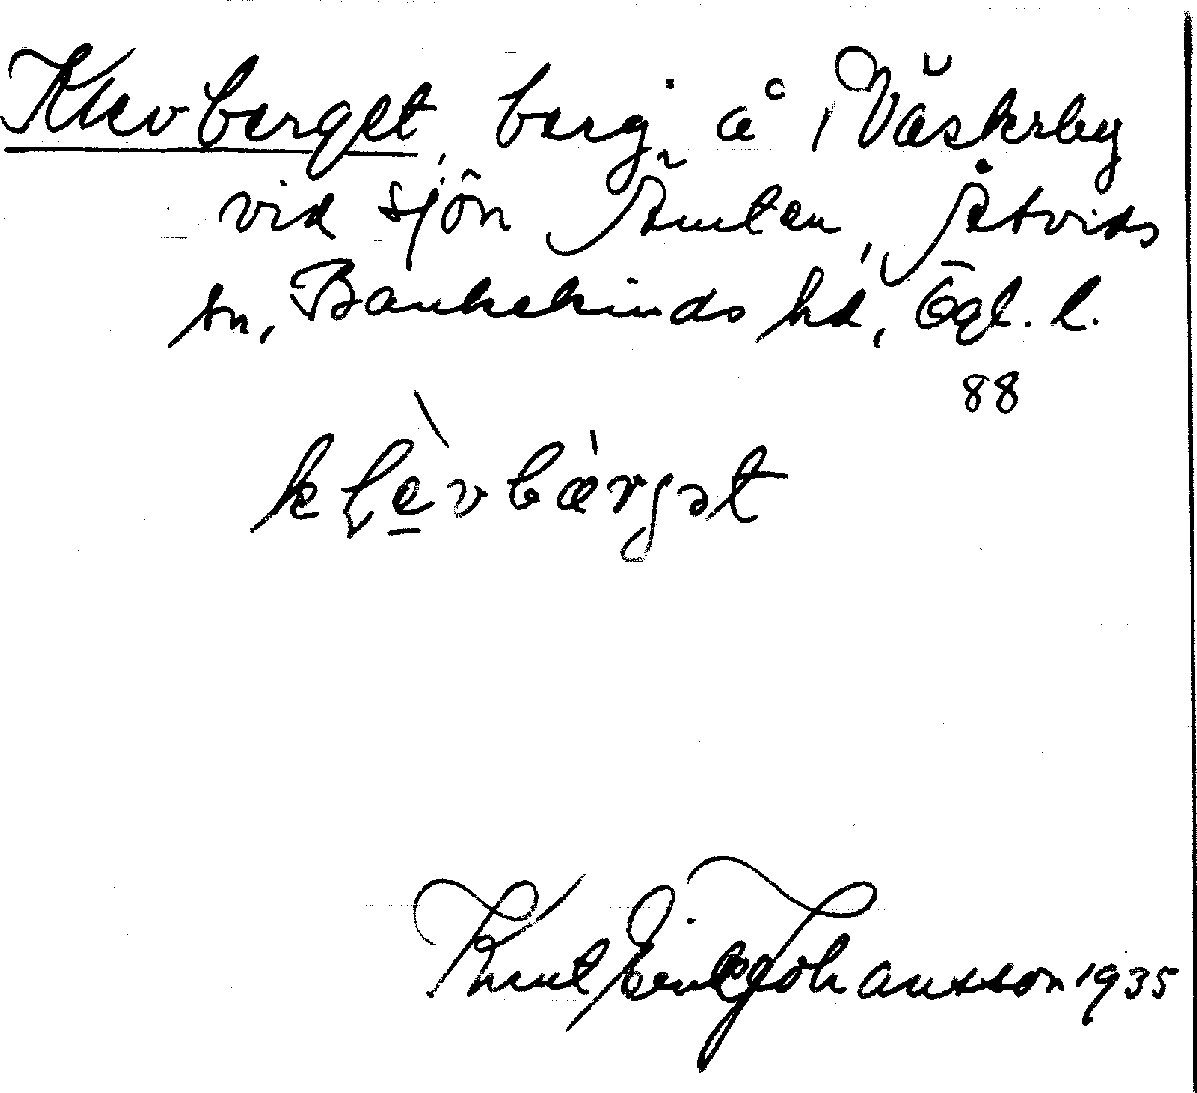 Klevberget, berg å Väskeby
vid sjön Ämten, Åtvids
sn, Bankekinds hd, Ögl. l.
88
klèvbæ̀rgət
Knut Erik Johansson 1935